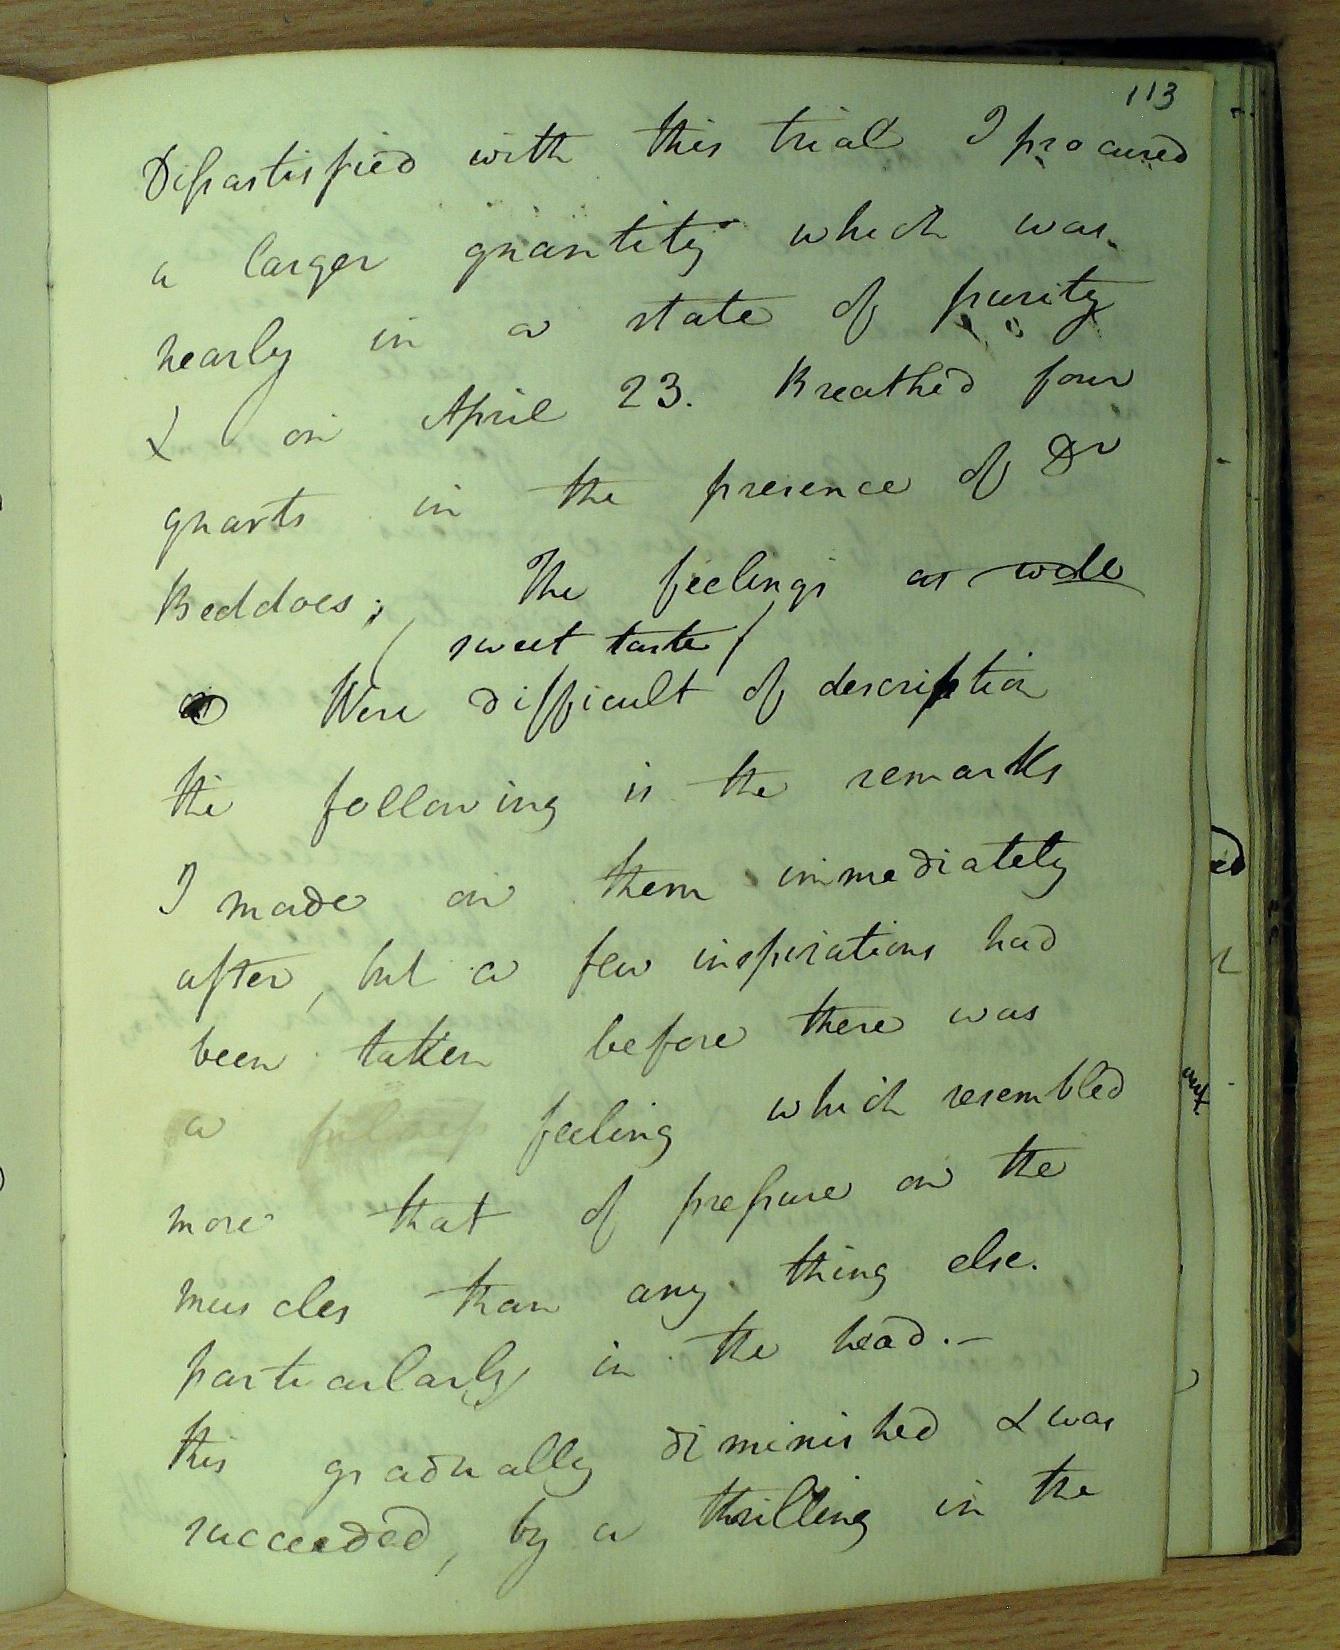 113
Dissastisfied with this trial I procured
a larger quantity which was
nearly in a state of purity
& on April 23. Breathed four
quarts in the presence of Dr
Beddoes; The feelings as
( sweet taste /
Were difficult of description
the following is the remarks
I made on them immediately
after, but a few inspirations had
been taken before there was
a fulness feeling which resembled
more that of pressure on the
muscles than any thing else.
particularly in the head.—
this gradually diminished & was
succeeded, by a thrilling in the